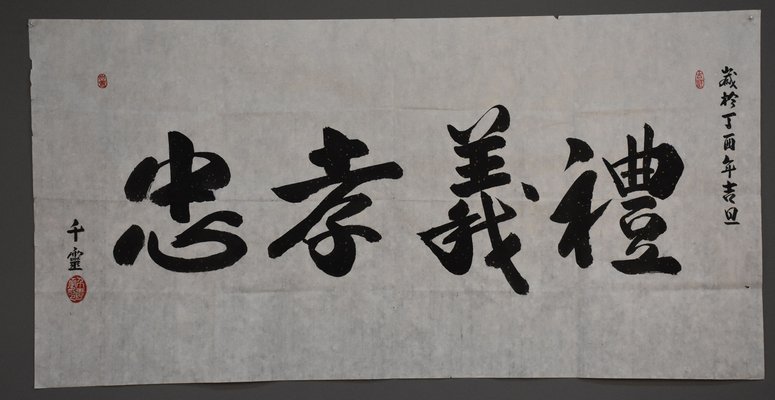 歲於丁酉年吉旦
禮義孝忠
千靈